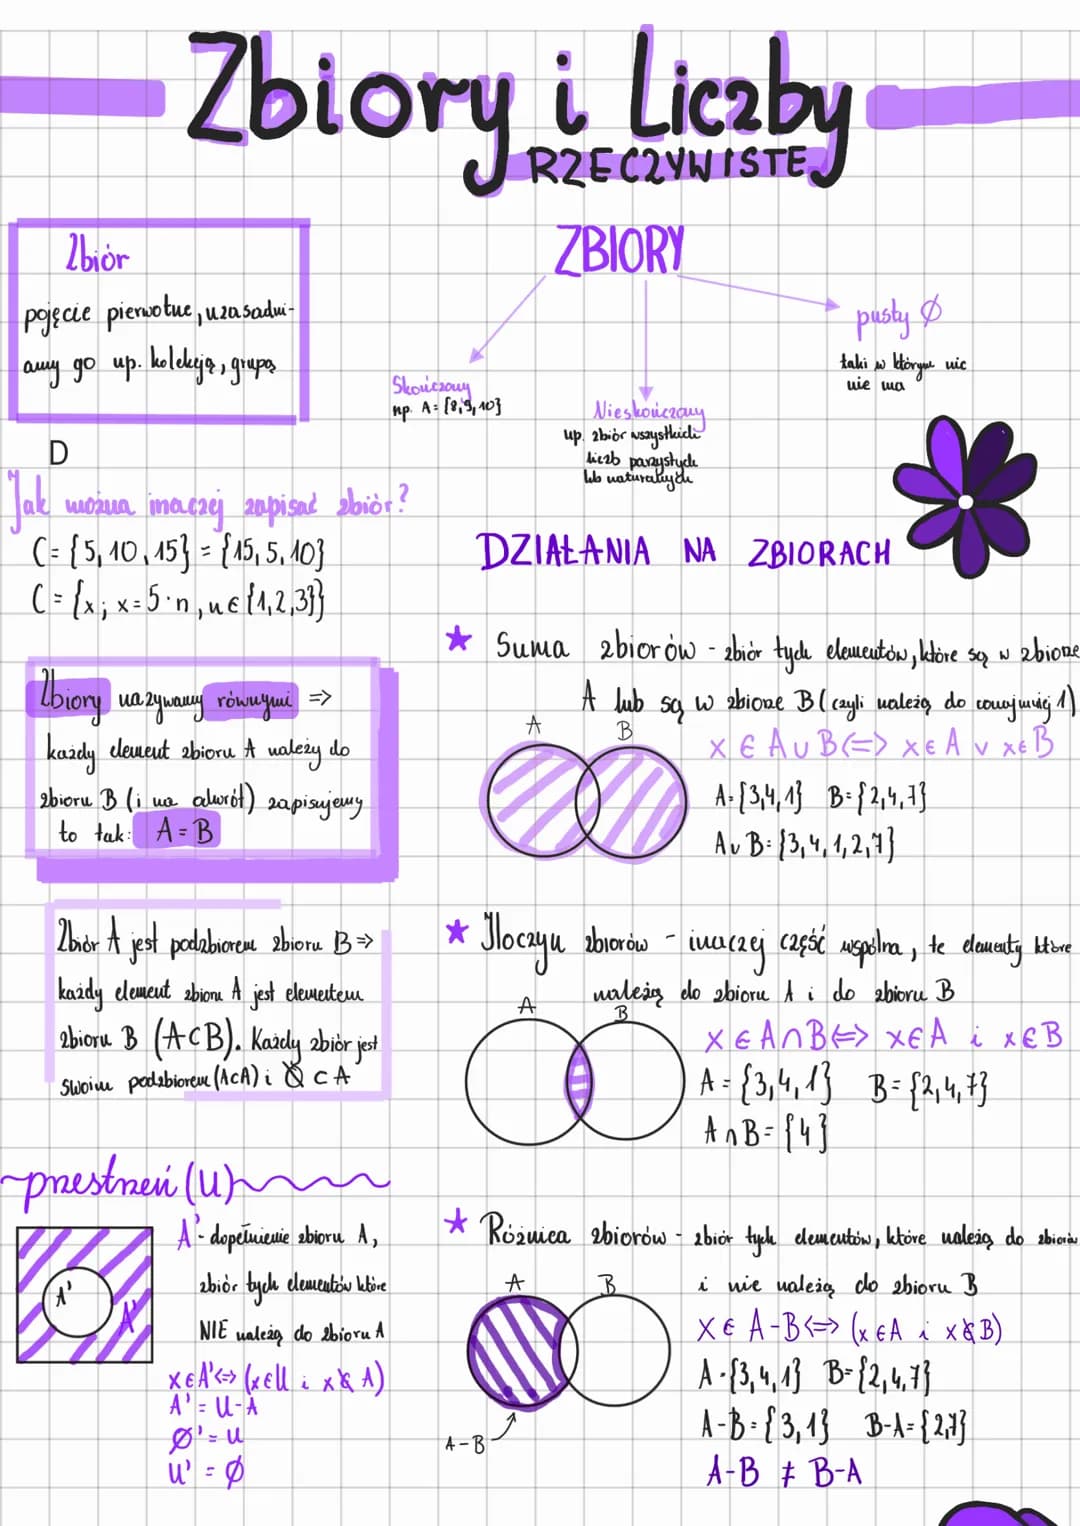 Zbiory i Liczby
RZECZYWISTE
Zbiór
pojęcie pierwotne, uzasadni-
amy go np. kolekcją, grupą
ZBIORY
Skończony
np. A = {8, 9, 10}
Nieskończony
np. zbiór wszystkich
liczb parzystych
lub naturalnych
pusty ∅
taki w którym nic
nie ma
D
Jak można inaczej zapisać zbiór?
C = {5, 10, 15} = {15, 5, 10}
C = {x; x = 5 · n, n ∈ {1,2,3}}
Zbiory nazywamy równymi =>
każdy element zbioru A należy do
zbioru B (i na odwrót) zapisujemy
to tak: A = B
Zbiór A jest podzbiorem zbioru B =>
każdy element zbioru A jest elementem
zbioru B (A⊂B). Każdy zbiór jest
swoim podzbiorem (A⊂A) i ∅ ⊂ A
przestrzeń (U)
A'
A'
A' - dopełnienie zbioru A,
zbiór tych elementów które
NIE należą do zbioru A
x∈A' <=> (x∈U i x∉A)
A' = U-A
∅' = U
U' = ∅
DZIAŁANIA NA ZBIORACH
★ Suma zbiorów - zbiór tych elementów, które są w zbiorze
A lub są w zbiorze B (czyli należą do conajmniej 1)
A B
x ∈ A∪B <=> x∈A ∨ x∈B
A = {3,4,1} B = {2,4,7}
A∪B = {3,4,1,2,7}
★ Iloczyn zbiorów - inaczej część wspólna, te elementy które
należą do zbioru A i do zbioru B
A B
x ∈ A∩B <=> x∈A i x∈B
A = {3,4,1} B = {2,4,7}
A∩B = {4}
★ Różnica zbiorów - zbiór tych elementów, które należą do zbioru
i nie należą do zbioru B
A B
x ∈ A-B <=> (x∈A i x∉B)
A = {3,4,1} B = {2,4,7}
A-B = {3,1} B-A = {2,7}
A-B
A-B ≠ B-A